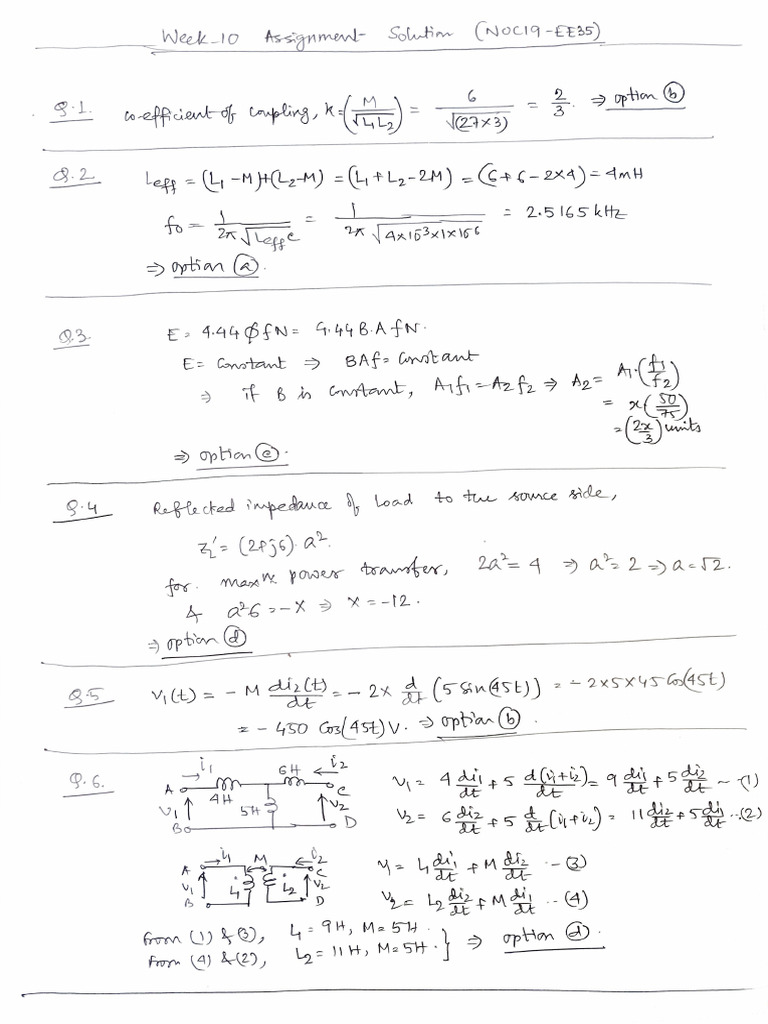 Week-10 Assignment Solution (NOC19-EE35)
Q.1. co-efficient of coupling, K = (M/√L₁L₂) = 6/√(27×3) = 2/3. ⇒ option ⓑ
Q.2 Leff = (L₁-M)+(L₂-M) = (L₁+L₂-2M) = (6+6-2×4) = 4mH
f₀ = 1/(2π√Leff C) = 1/(2π√4×10³×1×10⁶) = 2.5165 kHz
⇒ option ⓐ.
Q.3. E = 4.44 ϕfN = 4.44 B.A fN.
E = constant ⇒ BAf = constant
⇒ if B is constant, A₁f₁ = A₂f₂ ⇒ A₂ = A₁.(f₁/f₂)
= x(50/75)
= (2x/3) units
⇒ option ⓒ.
Q.4 Reflected impedance of load to the source side,
Z_L' = (2+j6).a².
for max^m power transfer, 2a² = 4 ⇒ a² = 2 ⇒ a = √2.
& a²6 = -X ⇒ X = -12.
⇒ option ⓓ
Q.5 v₁(t) = -M di₂(t)/dt = -2× d/dt (5 sin(45t)) = -2×5×45 Cos(45t)
= -450 Cos(45t) V. ⇒ option ⓑ.
Q.6. i₁ 6H i₂
A 4H C
V₁ 5H V₂
B D
V₁ = 4 di₁/dt + 5 d(i₁+i₂)/dt = 9 di₁/dt + 5 di₂/dt ~ (1)
V₂ = 6 di₂/dt + 5 d/dt (i₁+i₂) = 11 di₂/dt + 5 di₁/dt ...(2)
i₁ M i₂
A C
V₁ L₁ L₂ V₂
B D
V₁ = L₁ di₁/dt + M di₂/dt - (3)
V₂ = L₂ di₂/dt + M di₁/dt .. (4)
from (1) & (3), L₁ = 9H, M = 5H.
from (4) & (2), L₂ = 11H, M = 5H. } ⇒ option ⓓ.